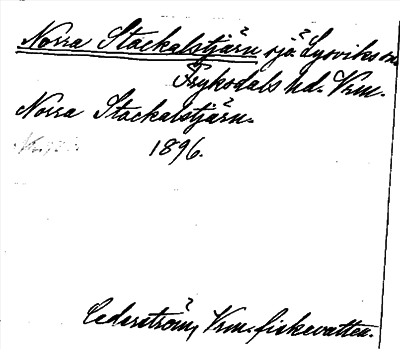 Norra Stackalstjärn sjö. Lysviks sn
Fryksdals hd. Vrm.
Norra Stackalstjärn.
1896.
Cederström, Vrm. fiskevatten.